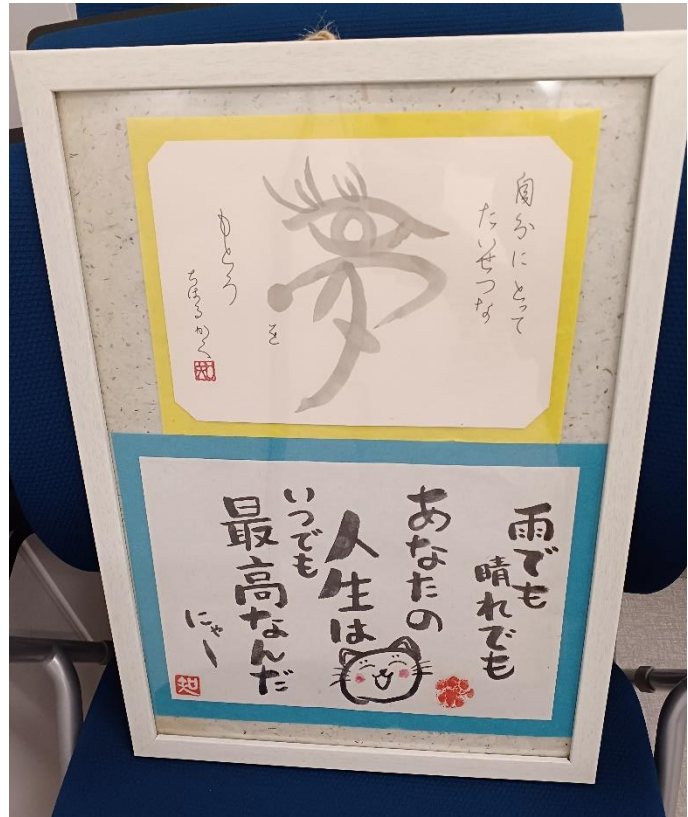 自分にとって
たいせつな
夢
を
もとう
雨でも
晴れでも
あなたの
人生は
いつでも
最高なんだ
にゃー
知